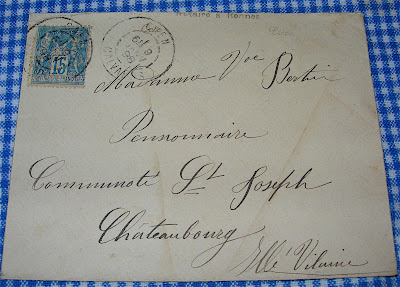 Notaire à Rennes
15
Madame Vve Bertin
Pensionnaire
Communoté St Joseph
Châteaubourg
Ille Vilaine